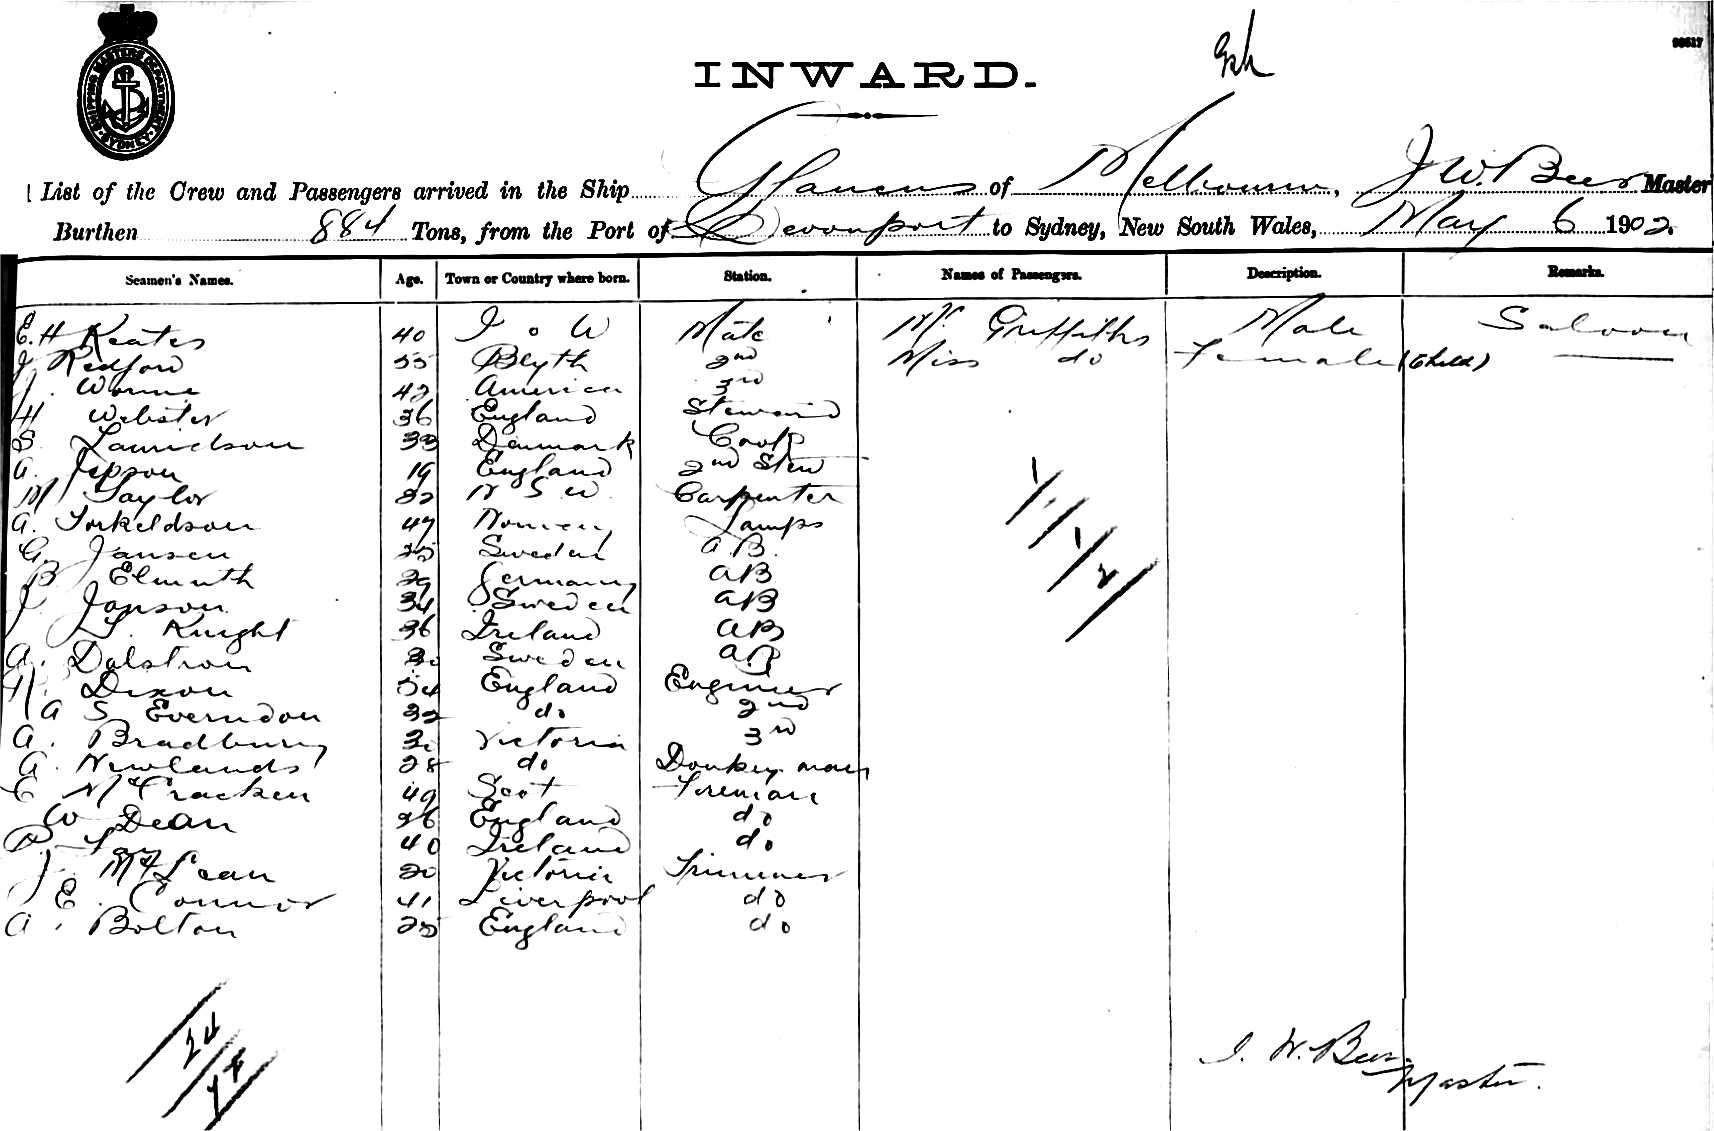 98517
SHIPPING MASTERS DEPARTMENT SYDNEY
INWARD.
List of the Crew and Passengers arrived in the Ship Glaucus of Melbourne, J W. Beer Master
Burthen 884 Tons, from the Port of Devonport to Sydney, New South Wales, May 6 1902.
Seamen's Names. Age. Town or Country where born. Station. Names of Passengers. Description. Remarks.
E. H Keates 40 I o W Mate Mr. Griffiths Male Saloon
J Redford 55 Blyth 2nd Miss do Female (Child)
J. 42 America 3rd
H Webster 36 England Steward
S. Lauridson 33 Denmark Cook
A. Jepson 19 England 2nd Stew
M Taylor 32 N S W Carpenter
A. Torkeldson 47 Norway Lamps
G. Jansen 25 Sweden A.B.
B Elmuth 29 Germany AB
J. Janson 34 Sweden AB
T. Knight 36 Ireland AB
A. Dalstron 30 Sweden A.B
H. Dixon 54 England Engineer
A S Everndon 32 do 2nd
A. Bradbury 30 Victoria 3rd
A. Newlands 28 do Donkeyman
E McCracken 49 Scot Fireman
W Dean 26 England do
P. Fay 40 Ireland do
J. McLean 20 Victoria Trimmer
E. Connor 41 Liverpool do
A. Bolton 25 England do
J. W. Beer
Master.